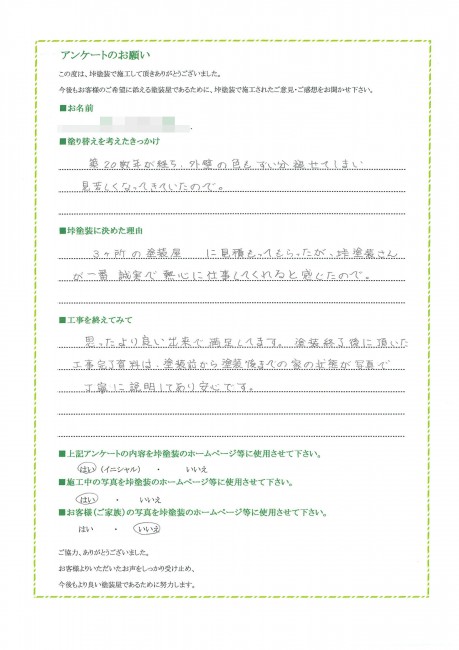 アンケートのお願い
この度は、垰塗装で施工して頂きありがとうございました。
今後もお客様のご希望に添える塗装屋であるために、垰塗装で施工されたご意見・ご感想をお聞かせ下さい。
■お名前
■塗り替えを考えたきっかけ
築20数年が経ち、外壁の色もずい分褪せてしまい
見苦しくなってきていたので。
■垰塗装に決めた理由
3ヶ所の塗装屋 に見積もってもらったが、垰塗装さん
が一番誠実で熱心に仕事してくれると感じたので。
■工事を終えてみて
思ったより良い出来で満足してます。塗装終了後に頂いた
工事完了資料は、塗装前から塗装後までの家の状態が写真で
丁寧に説明してあり安心です。
■上記アンケートの内容を垰塗装のホームページ等に使用させて下さい。
はい (イニシャル) ・ いいえ
■施工中の写真を垰塗装のホームページ等に使用させて下さい。
はい ・ いいえ
■お客様(ご家族)の写真を垰塗装のホームページ等に使用させて下さい。
はい ・ いいえ
ご協力、ありがとうございました。
お客様よりいただいたお声をしっかり受け止め、
今後もより良い塗装屋であるために努力します。